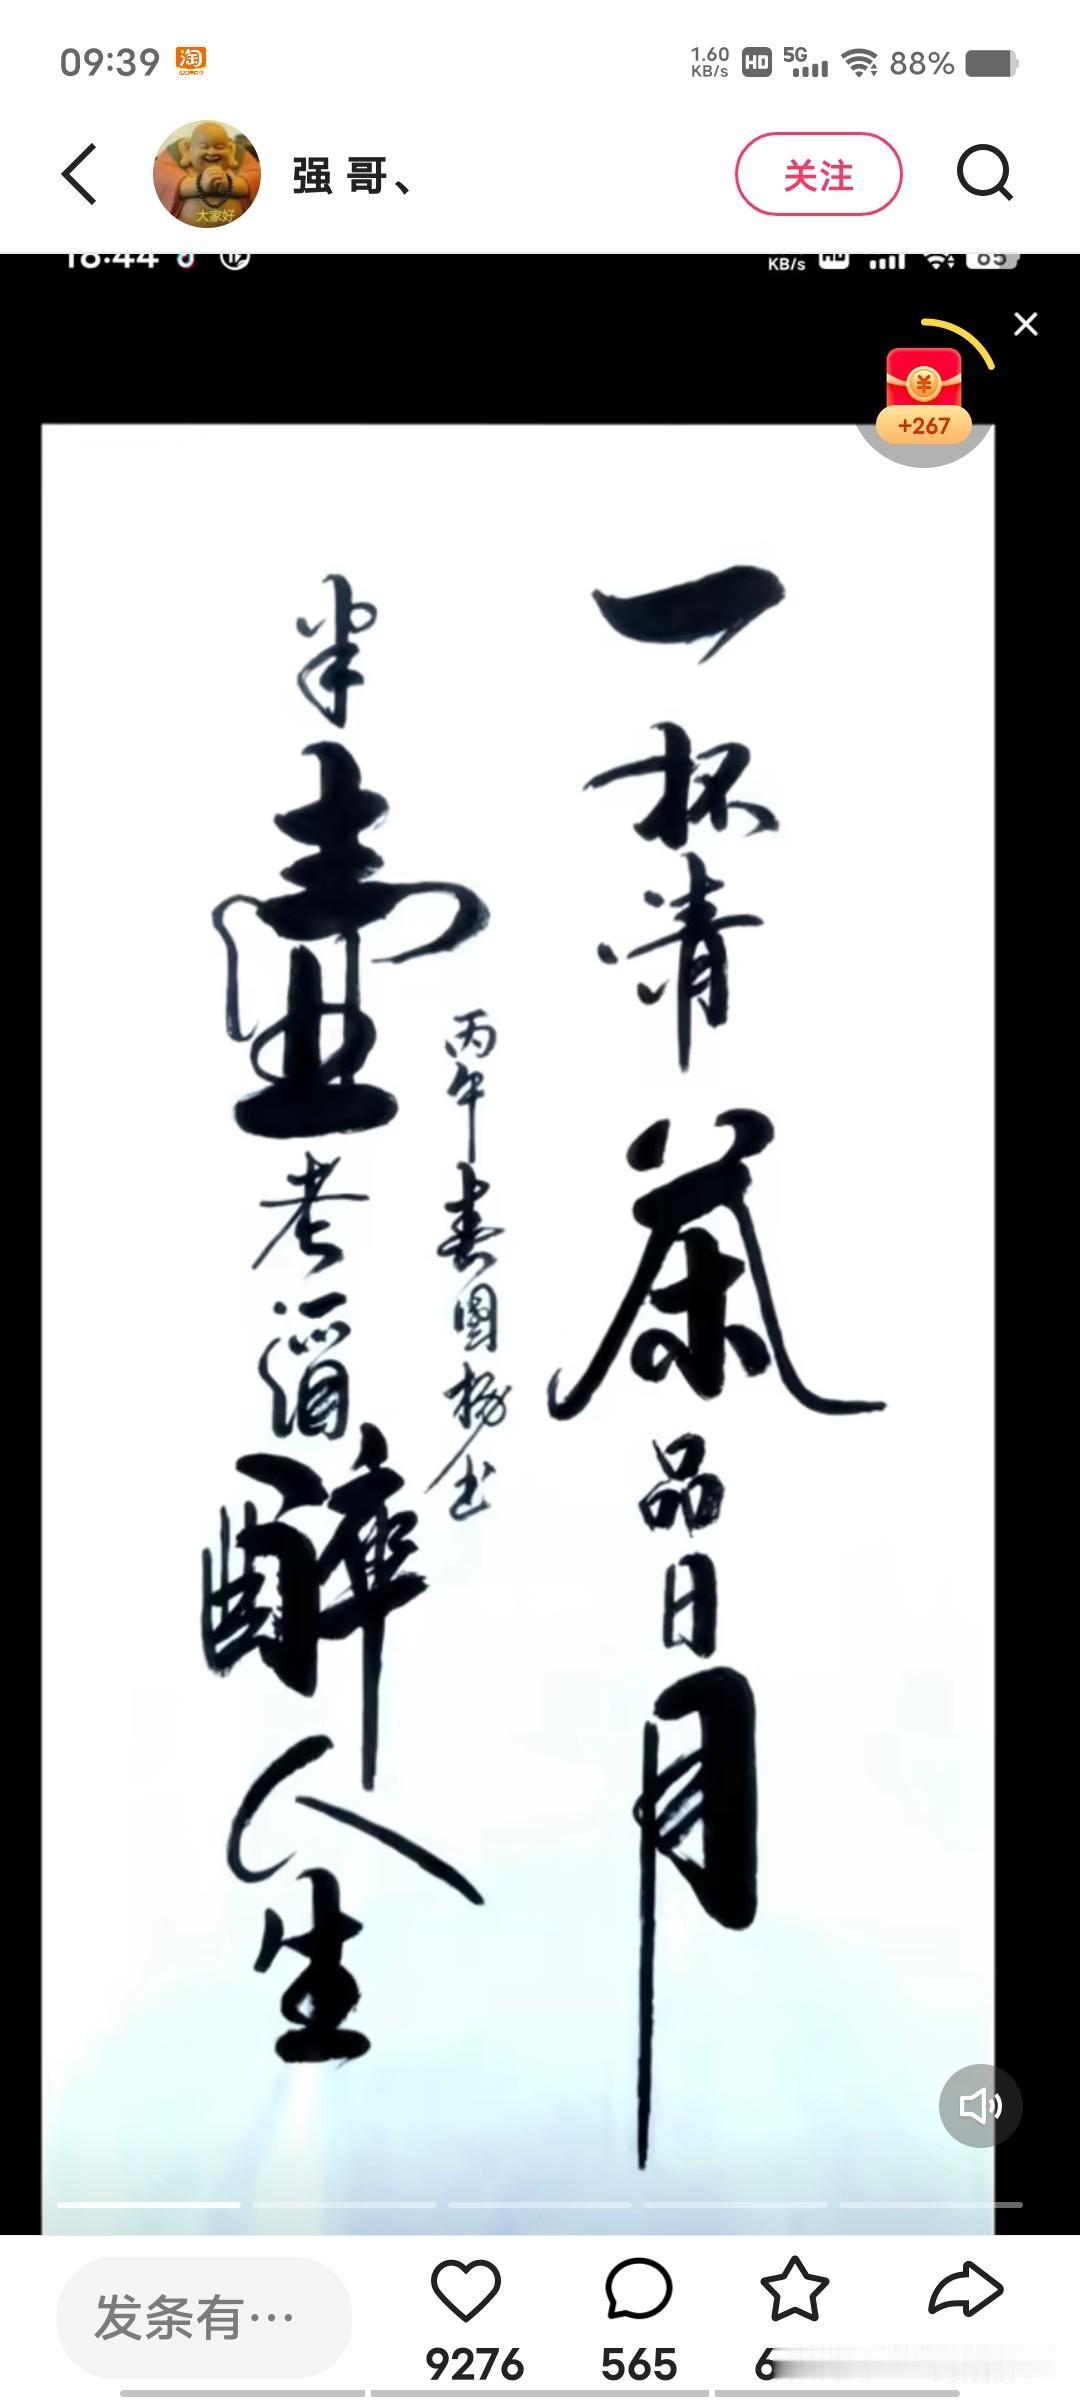 09:39 淘
1.60 KB/s HD 5G 88%
强 哥、
关注
18:44
KB/s HD 65
+267
一杯清茶品日月
半壶老酒醉人生
丙午春国杨书
发条有…
9276
565
6
大家好